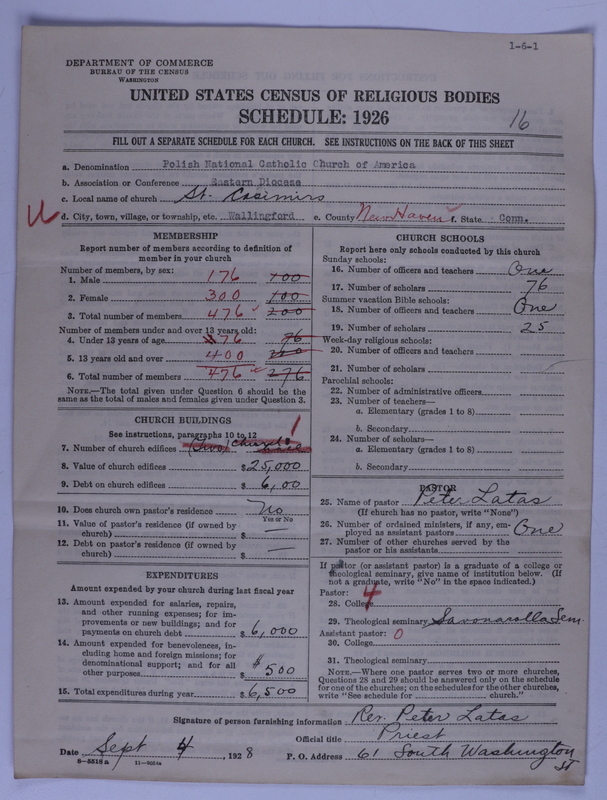 1-6-1
DEPARTMENT OF COMMERCE
BUREAU OF THE CENSUS
WASHINGTON
UNITED STATES CENSUS OF RELIGIOUS BODIES
SCHEDULE: 1926
16
FILL OUT A SEPARATE SCHEDULE FOR EACH CHURCH. SEE INSTRUCTIONS ON THE BACK OF THIS SHEET
a. Denomination Polish National Catholic Church of America
b. Association or Conference Eastern Diocese
c. Local name of church St. Casimirs
d. City, town, village, or township, etc. Wallingford e. County New Haven f. State Conn.
MEMBERSHIP
Report number of members according to definition of
member in your church
Number of members, by sex:
1. Male 176 100
2. Female 300 100
3. Total number of members 476 200
Number of members under and over 13 years old:
4. Under 13 years of age 76 76
5. 13 years old and over 400
6. Total number of members 476 276
NOTE.—The total given under Question 6 should be
same as the total of males and females given under Question 3.
CHURCH BUILDINGS
See instructions, paragraphs 10 to 12
7. Number of church edifices (Two) church 1
8. Value of church edifices $25,000
9. Debt on church edifices $6,00
10. Does church own pastor's residence No
Yes or No
11. Value of pastor's residence (if owned by
church) $ —
12. Debt on pastor's residence (if owned by
church) $ —
EXPENDITURES
Amount expended by your church during last fiscal year
13. Amount expended for salaries, repairs,
and other running expenses; for im-
provements or new buildings; and for
payments on church debt $6,000
14. Amount expended for benevolences, in-
cluding home and foreign missions; for
denominational support; and for all
other purposes $ $500
15. Total expenditures during year $6,500
CHURCH SCHOOLS
Report here only schools conducted by this church
Sunday schools:
16. Number of officers and teachers One
17. Number of scholars 76
Summer vacation Bible schools:
18. Number of officers and teachers One
19. Number of scholars 25
Week-day religious schools:
20. Number of officers and teachers
21. Number of scholars
Parochial schools:
22. Number of administrative officers
23. Number of teachers—
a. Elementary (grades 1 to 8)
b. Secondary
24. Number of scholars—
a. Elementary (grades 1 to 8)
b. Secondary
PASTOR
25. Name of pastor Peter Latas
(If church has no pastor, write "None")
26. Number of ordained ministers, if any, em-
ployed as assistant pastors One
27. Number of other churches served by the
pastor or his assistants
If pastor (or assistant pastor) is a graduate of a college or
theological seminary, give name of institution below. (If
not a graduate, write "No" in the space indicated.)
Pastor: 4
28. College
29. Theological seminary Savonarolla Sem.
Assistant pastor: 0
30. College
31. Theological seminary
NOTE.—Where one pastor serves two or more churches,
Questions 28 and 29 should be answered only on the schedule
for one of the churches; on the schedules for the other churches,
write "See schedule for church."
Signature of person furnishing information Rev. Peter Latas
Official title Priest
Date Sept 4, 1928 P. O. Address 61 South Washington St
8-5518a 11-9024a